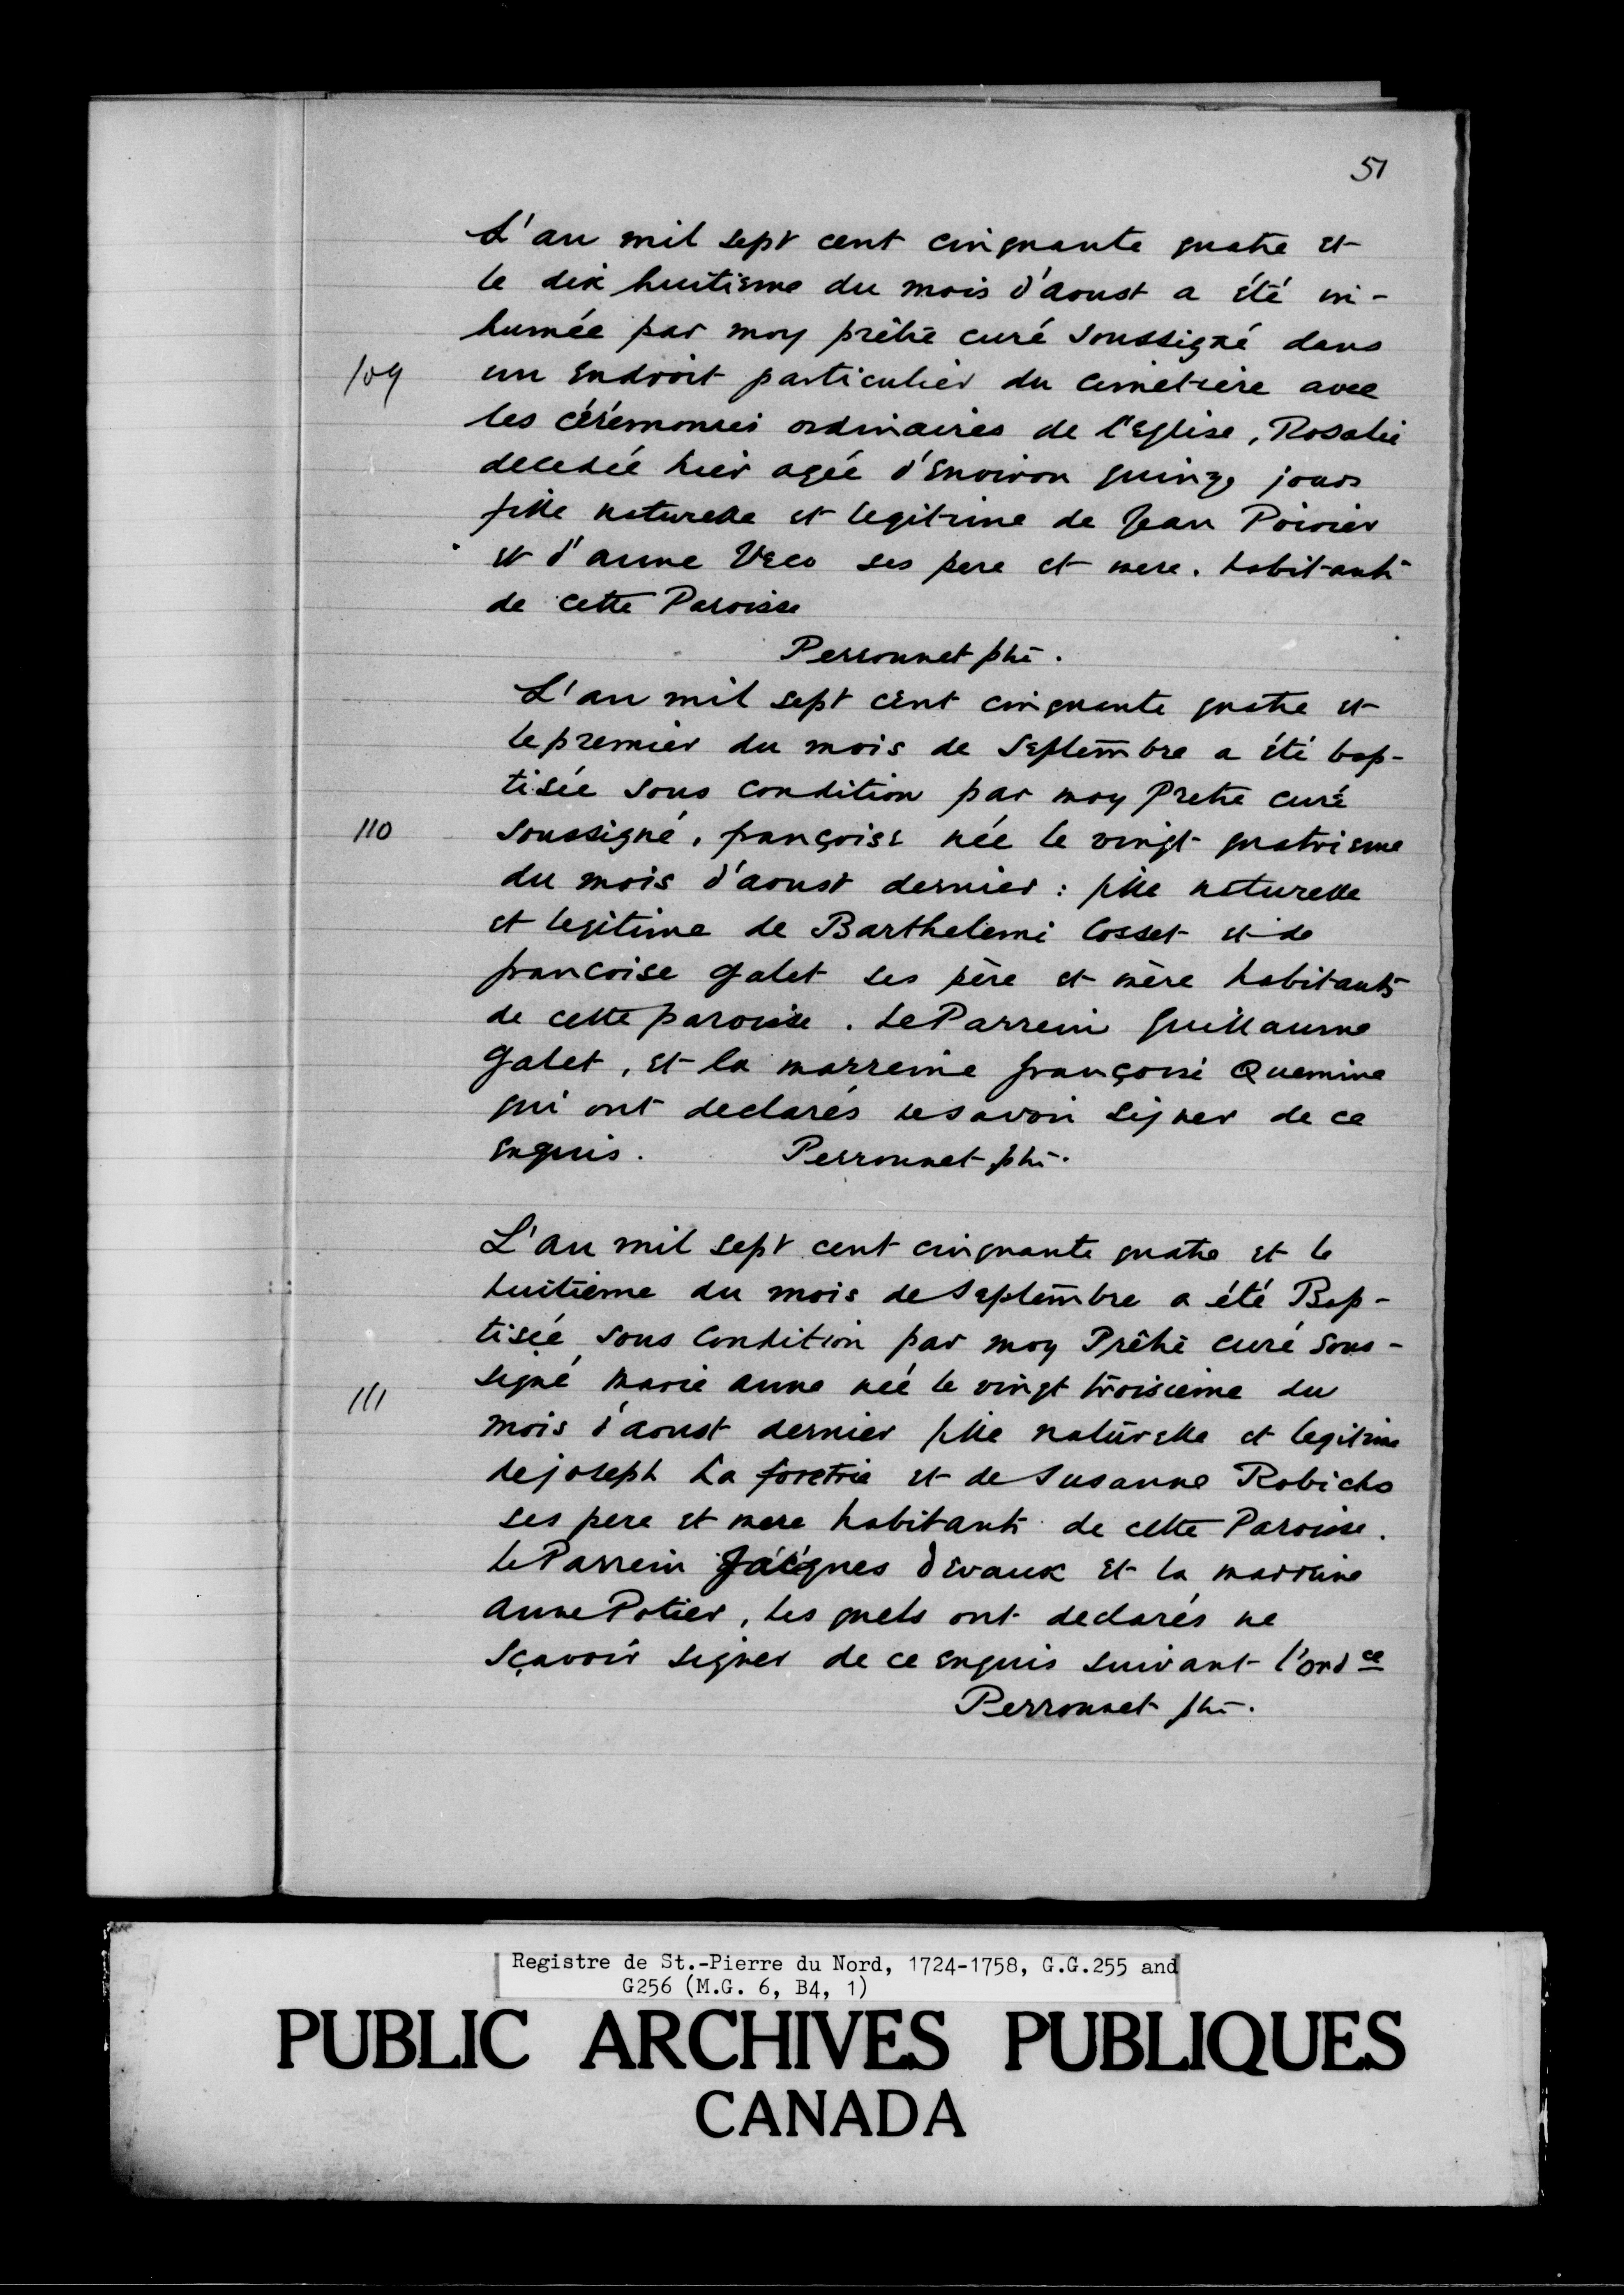 51
L'an mil sept cent cinquante quatre et
le dix huitieme du mois d'aoust a été in-
humée par moy prêtre curé soussigné dans
109
un endroit particulier du cimetiere avec
les cérémonies ordinaires de l'Eglise, Rosalie
decedée hier agée d'environ quinze jours
fille naturelle et legitime de Jean Poirier
et d'anne Veco ses pere et mere. habitants
de cette Paroisse
Perronnet ptre.
L'an mil sept cent cinquante quatre et
le premier du mois de Septembre a été bap-
tisée sous condition par moy Pretre curé
110
soussigné, françoise née le vingt quatrieme
du mois d'aoust dernier: fille naturelle
et legitime de Barthelemi Cosset et de
francoise galet ses père et mère habitants
de cette paroisse. Le Parrein guillaume
galet, et la marreine françoise Quemine
qui ont declarés ne savoir signer de ce
enquis. Perronnet ptre.
L'an mil sept cent cinquante quatre et le
huitième du mois de Septembre a été Bap-
tisée sous condition par moy Prêtre curé sous-
signé marie anne née le vingt troisieme du
111
mois d'aoust dernier fille naturelle et legitime
de joseph La foretrie et de Susanne Robicho
ses pere et mere habitants de cette Paroisse.
Le Parrein Jacques devaux et la marreine
anne Potier, les quels ont declarés ne
sçavoir signer de ce enquis suivant l'ordce
Perronnet ptre.
Registre de St.-Pierre du Nord, 1724-1758, G.G.255 and
G256 (M.G. 6, B4, 1)
PUBLIC ARCHIVES PUBLIQUES
CANADA